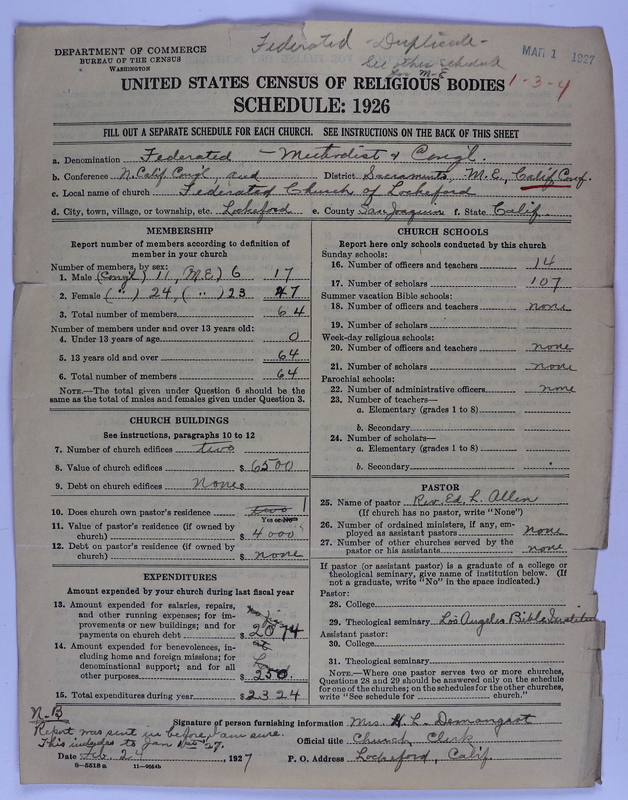 Federated - Duplicate -
See other schedule
for M-E
MAR 1 1927
1-3-4
DEPARTMENT OF COMMERCE
BUREAU OF THE CENSUS
WASHINGTON
UNITED STATES CENSUS OF RELIGIOUS BODIES
SCHEDULE: 1926
FILL OUT A SEPARATE SCHEDULE FOR EACH CHURCH. SEE INSTRUCTIONS ON THE BACK OF THIS SHEET
a. Denomination Federated - Methodist & Cong'l.
b. Conference N. Calif Cong'l, and District Sacramento, M.E., Calif Conf.
c. Local name of church Federated Church of Lockeford
d. City, town, village, or township, etc. Lockeford e. County San Joaquin f. State Calif.
MEMBERSHIP
Report number of members according to definition of
member in your church
Number of members, by sex:
1. Male (Cong'l) 11, (M.E) 6 17
2. Female ( " ) 24, ( " ) 23 47
3. Total number of members 64
Number of members under and over 13 years old:
4. Under 13 years of age 0
5. 13 years old and over 64
6. Total number of members 64
NOTE.—The total given under Question 6 should be the
same as the total of males and females given under Question 3.
CHURCH BUILDINGS
See instructions, paragraphs 10 to 12
7. Number of church edifices two
8. Value of church edifices $ 6500
9. Debt on church edifices None $
10. Does church own pastor's residence two 1
Yes or No
11. Value of pastor's residence (if owned by
church) $ 4000
12. Debt on pastor's residence (if owned by
church) $ none
EXPENDITURES
Amount expended by your church during last fiscal year
13. Amount expended for salaries, repairs,
and other running expenses; for im-
provements or new building; and for
payments on church debt $ 2074
14. Amount expended for benevolences, in-
cluding home and foreign missions; for
denominational support; and for all
other purposes $ 250
15. Total expenditures during year $ 2324
CHURCH SCHOOLS
Report here only schools conducted by this church
Sunday schools:
16. Number of officers and teachers 14
17. Number of scholars 107
Summer vacation Bible schools:
18. Number of officers and teachers none
19. Number of scholars
Week-day religious schools:
20. Number of officers and teachers none
21. Number of scholars none
Parochial schools:
22. Number of administrative officers none
23. Number of teachers—
a. Elementary (grades 1 to 8)
b. Secondary
24. Number of scholars—
a. Elementary (grades 1 to 8)
b. Secondary
PASTOR
25. Name of pastor Rev. Ed. L. Allen
(If church has no pastor, write "None")
26. Number of ordained ministers, if any, em-
ployed as assistant pastors none
27. Number of other churches served by the
pastor or his assistants none
If pastor (or assistant pastor) is a graduate of a college or
theological seminary, give name of institution below. (If
not a graduate, write "No" in the space indicated.)
Pastor:
28. College
29. Theological seminary Los Angeles Bible Institute
Assistant pastor:
30. College
31. Theological seminary
NOTE.—Where one pastor serves two or more churches,
Questions 28 and 29 should be answered only on the schedule
for one of the churches; on the schedules for the other churches,
write "See schedule for church."
N.B
Report was sent in before, am sure.
This includes to Jan 1st '27.
Signature of person furnishing information Mrs. H. L. Demangast
Official title Church Clerk
Date Feb. 24, 1927 P. O. Address Lockeford, Calif.
8-5518a 11-9664b